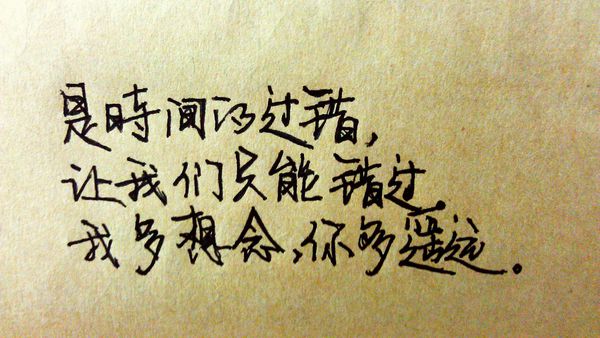 是時间的过错,
让我们只能错过,
我多想念,你多遥远。